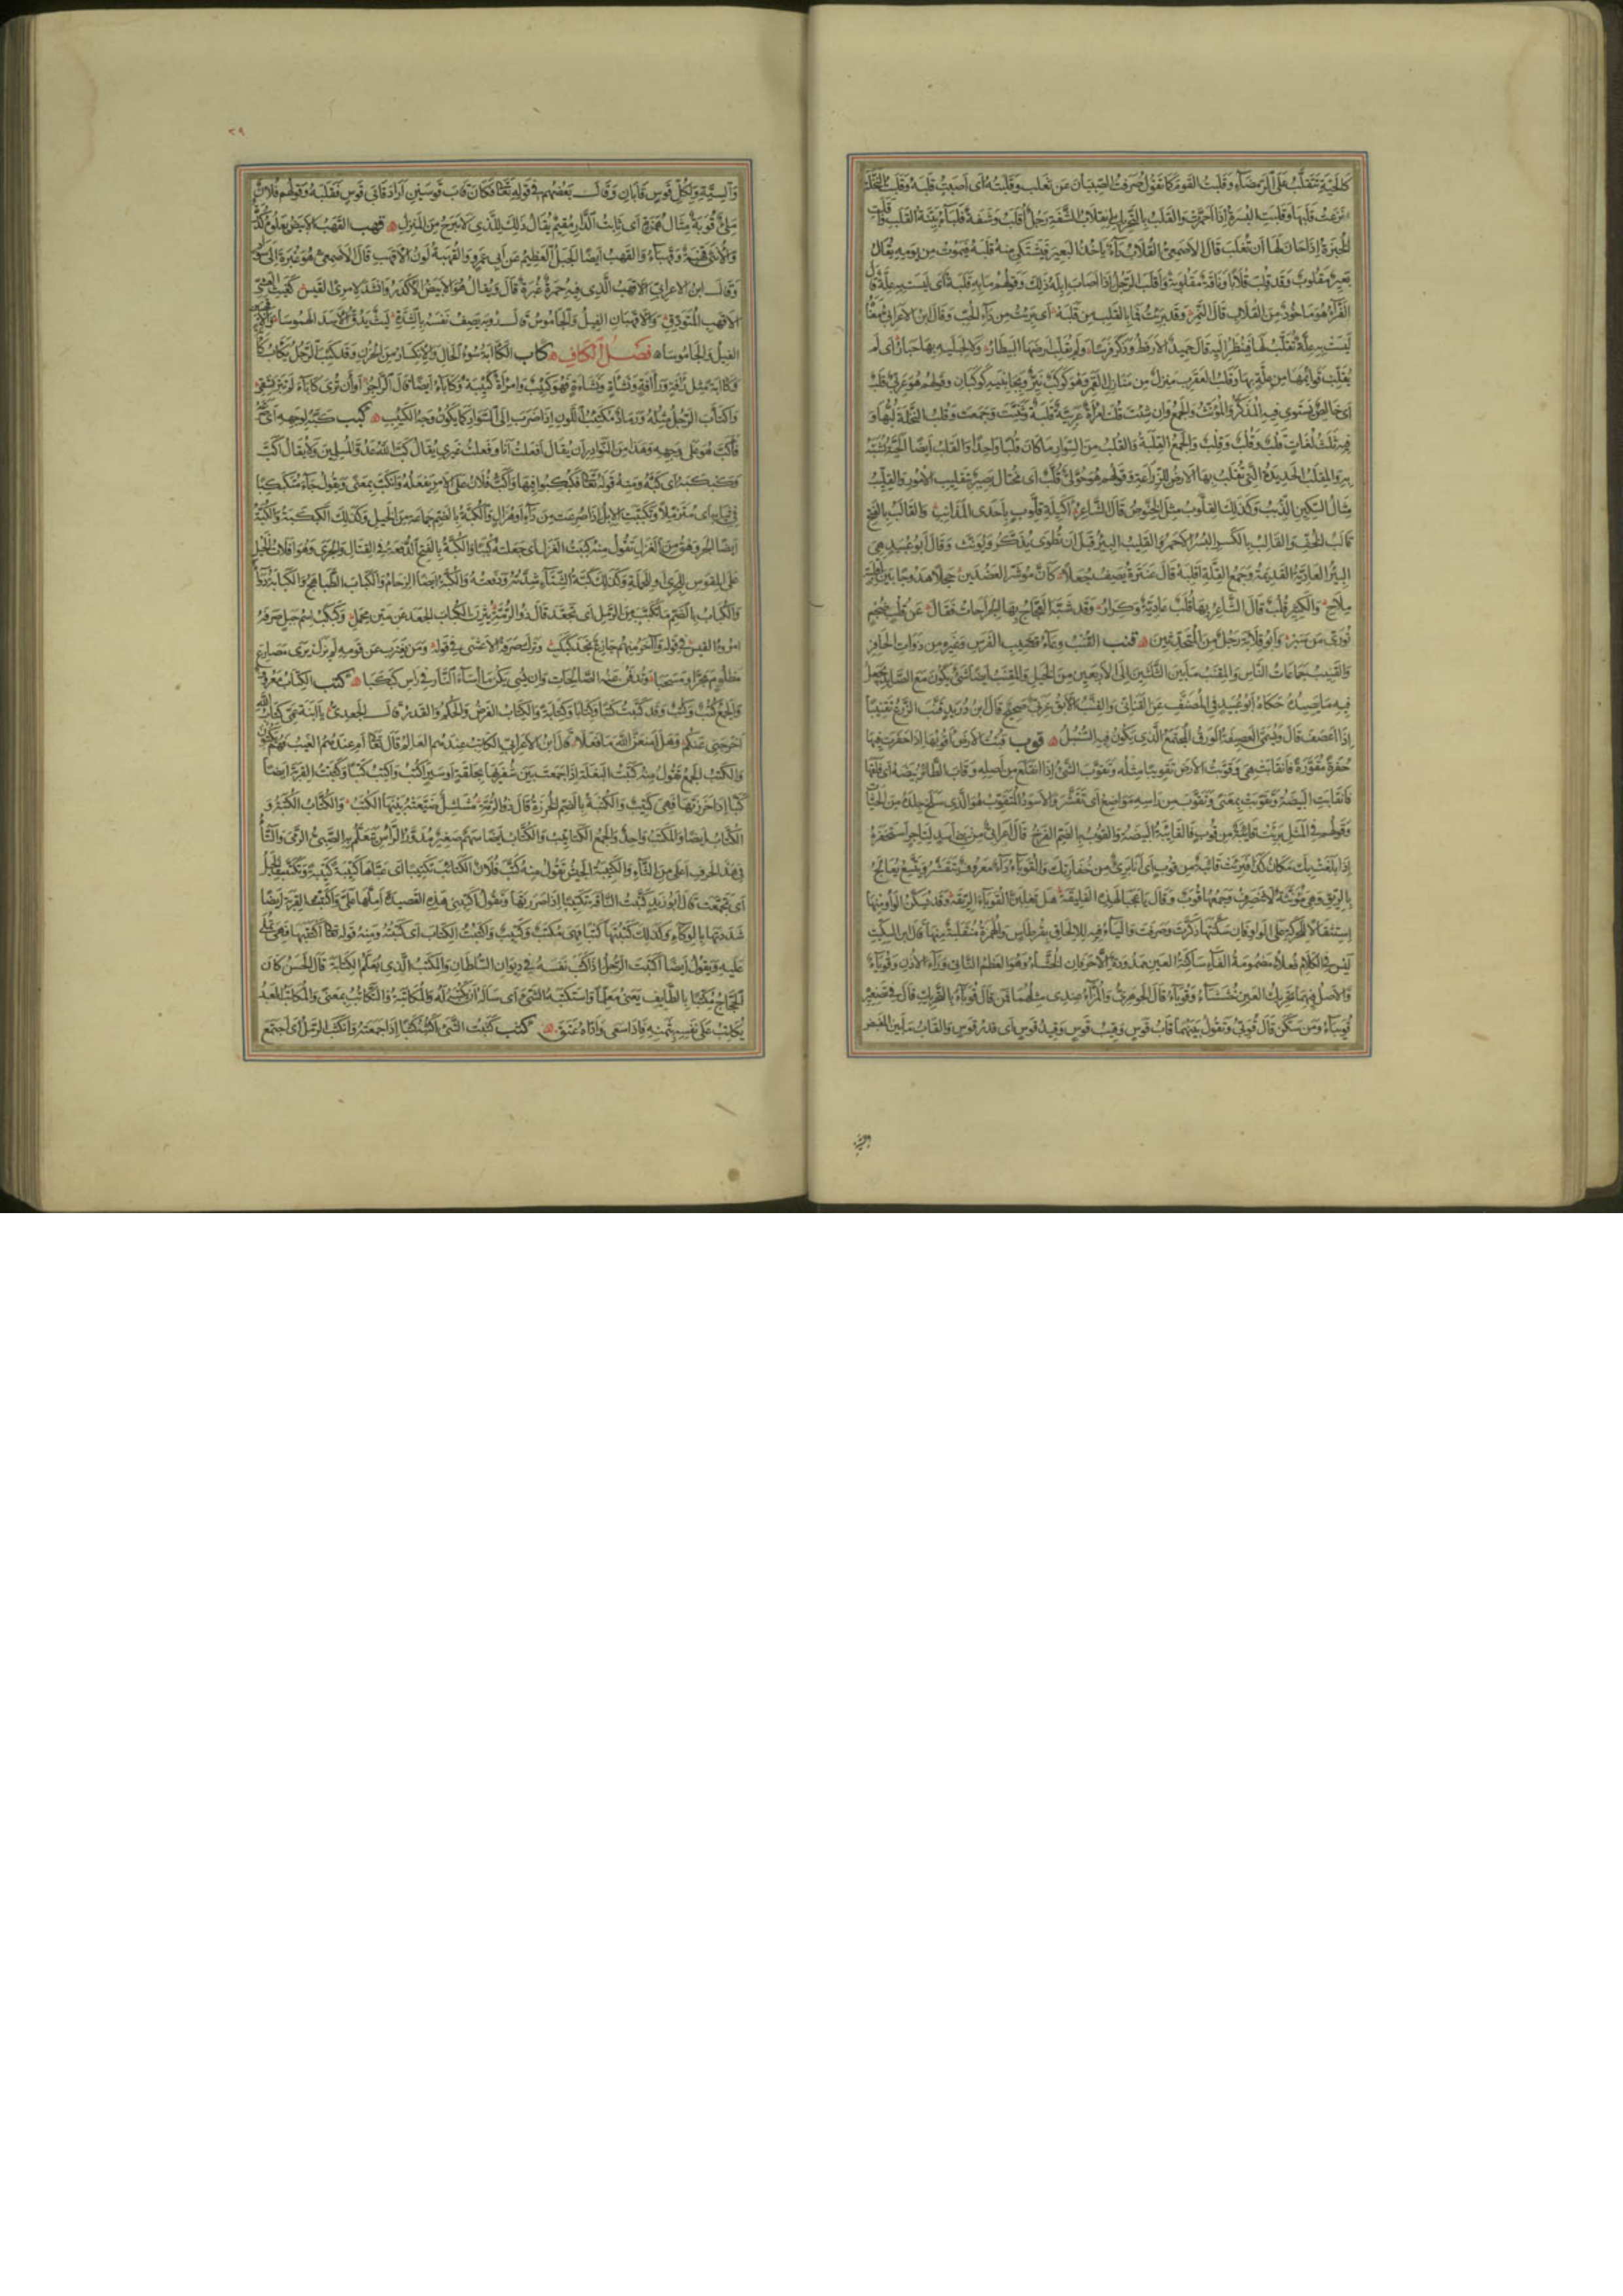 كالحية تتقلب على الرمضاء وقلبت القوم كما تقول صرفت الصبيان عن ثعلب وقلبته اى اصبت قلبه وقلبت النخلة
نزعت قلبها وقلبت البسرة اذا احمرت والقلب بالتحريك انقلاب الشفة رجل اقلب وشفة قلباء بينة القلب وقلبت
الخبزة اذا حان لها ان تقلب قال الاصمعى القلاب داء ياخذ البعير فيشتكى منه قلبه فيموت من يومه يقال
بعير مقلوب وقد قلب قلابا وناقة مقلوبة واقلب الرجل اذا اصاب ابله ذلك وقولهم ما به قلبة اى ليست به علة قال
الفراء هو ماخوذ من القلاب قال النمر وقد برئت فما بالقلب من قلبه اى برئت من داء الحب وقال ابن الاعرابى معناه
ليست به علة تقلب لها فينظر اليه قال حميد الارقط وذكر فرسا ولم يقلب ارضها البيطار ولا لحبليه بها حبار اى لم
يقلب قوائمها من علة بها وقلب العقرب منزل من منازل القمر وهو كوكب نير وبجانبيه كوكبان وقولهم هو عربى قلب
اى خالص يستوى فيه المذكر والمؤنث والجمع وان شئت قلت امراة عربية قلبة وثنيت وجمعت وقلب النخلة لبها و
فيه ثلث لغات قلب وقلب وقلب والجمع القلبة والقلب من السوار ما كان قلبا واحدا والقلب ايضا الحية شبه
به والمقلب الحديدة التى تقلب بها الارض للزراعة وقولهم هو حول قلب اى محتال بصير بتقليب الامور والقليب
مثال السكين الذئب وكذلك القلوب مثل الخنوص قال الشاعر اكيلة قلوب باحدى المذانب والقالب بالفتح
قالب الخف والقالب بالكسر البسر الاحمر والقليب البئر قبل ان تطوى يذكر ويؤنث وقال ابو عبيد هى
البئر العادية القديمة وجمع القلة اقلبة قال عنترة يصف جعلا كان مؤشر العضدين حجلا هدوجا بين اقلبة
ملاح والكثير قلب قال الشاعر بها قلب عادية وكرار وقد شبه العجاج بها الجراحات فقال عن قلب ضجم
تورى من سبر وابو قلابة رجل من المحدثين قنب القنب وعاء قضيب الفرس وغيره من ذوات الحافر
والقنيب جماعات الناس والمقنب ما بين الثلثين الى الاربعين من الخيل والمقنب ايضا شئ يكون مع الصائد يجعل
فيه ما يصيده حكاه ابو عبيد فى المصنف عن القنانى والقنب الابق عربى صحيح قال ابن دريد قنب الزرع تقنيبا
اذا اعصف قال وتسمى العصيفة الورق المجتمع الذى يكون فيه السنبل قوب قبت الارض اقوبها اذا حفرت فيها
حفرة مقورة فانقابت هى وقوبت الارض تقويبا مثله وتقوب الشئ اذا انقلع من اصله وقاب الطائر بيضه اى فلقها
فانقابت البيضة وتقوبت بمعنى وتقوب من راسه مواضع اى تقشر والاسود المتقوب هو الذى سلخ جلده من الحيات
وقولهم فى المثل برئت قائبة من قوب فالقائبة البيضة والقوب بالضم الفرخ قال اعرابى من بنى اسد لتاجر استخفره
اذا بلغت بك مكان كذا فبرئت قائبة من قوب اى انا برئ من خفارتك والقوباء داء معروف يتقشر ويتسع يعالج
بالريق وهى مؤنثة لا تنصرف وجمعها قوب وقال يا عجبا لهذه الفليقه هل تغلبن القوباء الريقه وقد تسكن الواو منها
استثقالا للحركة على الواو فان سكنتها ذكرت وصرفت والياء فيه للالحاق بقرطاس والهمزة منقلبة منها قال ابن السكيت
ليس فى الكلام فعلاء مضمومة الفاء ساكنة العين ممدودة الا حرفان الخشاء وهو العظم الناتئ وراء الاذن وقوباء
والاصل فيهما تحريك العين خششاء وقوباء قال الجوهرى والمزاء عندى مثلهما فمن قال قوباء بالتحريك قال فى تصغيره
قويباء ومن سكن قال قويبى وتقول بينهما قاب قوس وقيب قوس وقيد قوس اى قدر قوس والقاب ما بين المقبض
والسية ولكل قوس قابان وقال بعضهم فى قوله تعالى فكان قاب قوسين اراد قابى قوس فقلبه وقولهم فلان
ملئ قوبة مثال همزة اى ثابت الدار مقيم يقال ذلك للذى لا يبرح من المنزل قهب القهب الابيض يعلوه كدرة
والانثى قهبة وقهباء والقهب ايضا الجبل العظيم عن ابى عمرو والقهبة لون الاقهب قال الاصمعى هو غبرة الى سواد
وقال ابن الاعرابى الاقهب الذى فيه حمرة غبرة قال ويقال هو الابيض الاكدر وانشد لامرئ القيس كغيث العشى
الاقهب المتودق والاقهبان الفيل والجاموس قال رؤبة يصف نفسه بالشدة ليث يدق الاسد الهموسا والاقهبين
الفيل والجاموسا فصل الكاف كاب الكآبة سوء الحال والانكسار من الحزن وقد كئب الرجل يكأب كأبا
وكآبة مثل رأفة ورآفة ونشأة ونشاءة فهو كئيب وامراة كئيبة وكأباء ايضا قال الراجز او ان ترى كأباء لم تبرنشقى
واكتاب الرجل مثله ورماد مكتئب اللون اذا ضرب الى السواد كما يكون وجه الكئيب كبب كبه لوجهه اى صرعه
فاكب هو على وجهه وهذا من النوادر ان يقال افعلت انا وفعلت غيرى يقال كب الله عدو المسلمين ولا يقال اكب
وكبكبه اى كبه ومنه قوله تعالى فكبكبوا فيها واكب فلان على الامر يفعله وانكب بمعنى وتقول جاء متكبكبا
فى ثيابه اى متزملا وتكببت الابل اذا صرعت من داء او هزال والكبة بالضم جماعة من الخيل وكذلك الكبكبة والكبة
ايضا الجروهق من الغزل تقول منه كببت الغزل اى جعلته كببا والكبة بالفتح الدفعة فى القتال والجرى وهو افلات الخيل
على المقوس للجرى او للحملة وكذلك كبة الشتاء شدته ودفعته والكبة ايضا الزحام والكباب الطباهج والكبابة دواء
والكباب بالضم ما تكبب من الرمل اى تجعد قال ذو الرمة يثرن الكباب الجعد عن متن محمل وكبكب اسم جبل صرفه
امرؤ القيس فى قوله وآخر منهم جازع نجد كبكب وترك صرفه الاعشى فى قوله ومن يغترب عن قومه لم يزل يرى مصارع
مظلوم مجرا ومسحبا وتدفن منه الصالحات وان يسئ يكن ما اساء النار فى راس كبكبا كتب الكتاب معروف
والجمع كتب وكتب وقد كتبت كتبا وكتابا وكتابة والكتاب الفرض والحكم والقدر قال الجعدى يا ابنة عمى كتاب الله
اخرجنى عنكم وهل امنعن الله ما فعلا قال ابن الاعرابى الكاتب عندهم العالم قال تعالى ام عندهم الغيب فهم يكتبون
والكتب الجمع تقول منه كتبت البغلة اذا جمعت بين شفريها بحلقة او سير اكتب واكتب كتبا وكتبت القربة ايضا
كتبا اذا خرزتها فهى كتيب والكتبة بالضم الخرزة قال ذو الرمة مشلشل ضيعته بينها الكتب والكتاب الكتبة و
الكتاب ايضا والمكتب واحد والجمع الكتاتيب والكتاب ايضا سهم صغير مدور الراس يتعلم به الصبى الرمى والثاء
فى هذا الحرف اعلى من التاء والكتيبة الجيش تقول منه كتب فلان الكتائب تكتيبا اى عباها كتيبة كتيبة وتكتبت الخيل
اى تجمعت قال ابو زيد كتبت الناقة تكتيبا اذا صررتها وتقول اكتبنى هذه القصيدة املها على واكتبت القربة ايضا
شددتها بالوكاء وكذلك كتبتها كتبا فهى مكتب وكتيب واكتتبت الكتاب اى كتبته ومنه قوله تعالى اكتتبها فهى تملى
عليه وتقول ايضا اكتتب الرجل اذا كتب نفسه فى ديوان السلطان والمكتب الذى يعلم الكتابة قال الحسن كان
الحجاج مكتبا بالطائف يعنى معلما واستكتبه الشئ اى ساله ان يكتبه له والمكاتبة والتكاتب بمعنى والمكاتب العبد
يكاتب على نفسه بثمنه فاذا سعى واداه عتق كثب كثبت الشئ اكثبه كثبا اذا جمعته وانكثب الرمل اى اجتمع